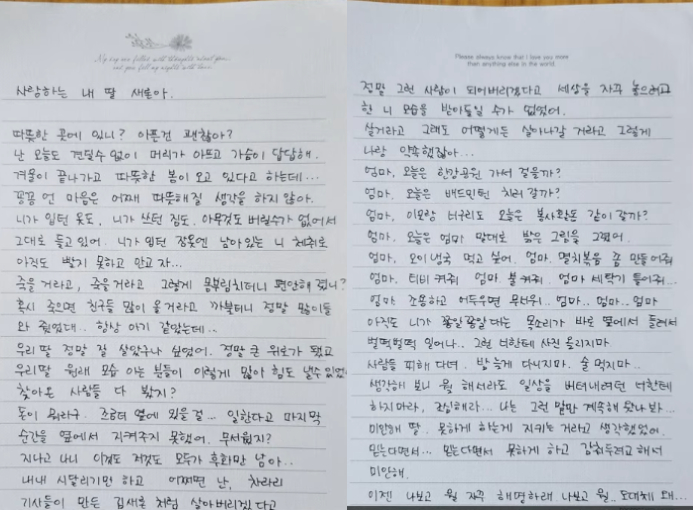 사랑하는 내 딸 새론아.
따뜻한 곳에 있니? 아픈건 괜찮아?
난 오늘도 견딜수 없이 머리가 아프고 가슴이 답답해.
겨울이 끝나가고 따뜻한 봄이 오고 있다고 하는데...
꽁꽁 언 마음은 어째 따뜻해질 생각을 하지 않아.
니가 입던 옷도, 니가 쓰던 짐도. 아무것도 버릴수가 없어서
그대로 들고 있어. 니가 입던 잠옷엔 남아있는 니 체취로
아직도 빨지 못하고 안고 자...
죽을 거라고, 죽을거라고 그렇게 몸부림치더니 편안해 졌니?
혹시 죽으면 친구들 많이 올거라고 까불더니 정말 많이들
와 줬었대.. 항상 아기 같았는데..
우리 딸 정말 잘 살았구나 싶었어. 정말 큰 위로가 됐고
우리딸 원래 모습 아는 분들이 이렇게 많아 힘도 낼수 있었
찾아온 사람들 다 봤지?
돈이 뭐라구. 조금더 옆에 있을 걸... 일한다고 마지막
순간을 옆에서 지켜주지 못했어. 무서웠지?
지나고 나니 이것도 저것도 모두가 후회만 남아..
내내 시달리기만 하고 어쩌면 난, 차라리
기사들이 만든 김새론 처럼 살아버리겠다고
My day are filled with thoughts about you
and you fill my nights with love.
Please always know that I love you more
than anything else in the world.
정말 그런 사람이 되어버리겠다고 세상을 자꾸 놓으려고
한 니 모습을 받아들일 수가 없었어.
살거라고 그래도 어떻게든 살아나갈 거라고 그렇게
나랑 약속했잖아...
엄마, 오늘은 한강공원 가서 걸을까?
엄마. 오늘은 배드민턴 치러 갈까?
엄마, 이모랑 너구리도 오늘은 복사 같이 갈까?
엄마. 오늘은 엄마 말대로 밝은 그림을 그렸어.
엄마, 오이냉국 먹고 싶어. 엄마. 멸치볶음 좀 만들어줘
엄마. 티비 켜줘 엄마 불 켜줘. 엄마 세탁기 틀어줘...
엄마. 조용하고 어두우면 무서워.. 엄마.. 엄마.. 엄마
아직도 니가 꽁알꽁알대는 목소리가 바로 옆에서 들려서
벌떡벌떡 일어나.. 그런 너한테 사진 올리지마
사람들 피해 다녀. 밤 늦게 다니지마. 술 먹지마..
생각해 보니 뭘 해서라도 일상을 버텨내려던 너한테
하지마라, 조심해라... 나는 그런 말만 계속해 왔나 봐...
미안해 딸. 못하게 하는게 지키는 거라고 생각했었어.
믿는다면서... 믿는다면서 못하게 하고 감춰두려고 해서
미안해.
이젠 나보고 뭘 자꾸 해명하래 나보고 뭘.. 도대체 왜...